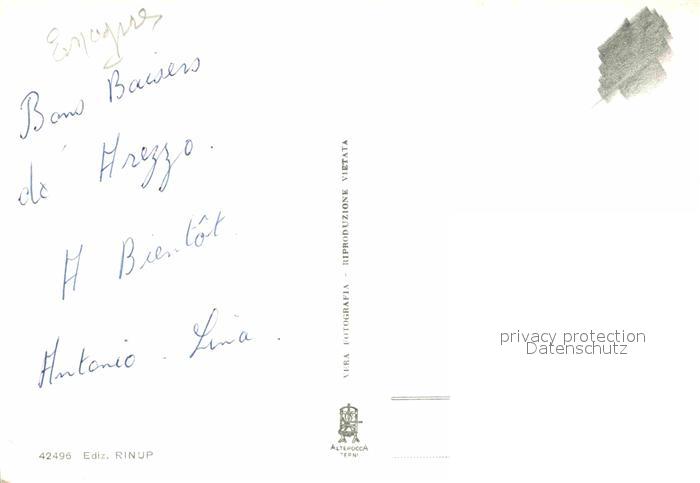 Espagne
Bons Baisers
de Arezzo.
A Bientôt.
Antonio - Lina.
VERA FOTOGRAFIA - RIPRODUZIONE VIETATA
privacy protection
Datenschutz
ALTEROCCA
TERNI
42496 Ediz. RINUP